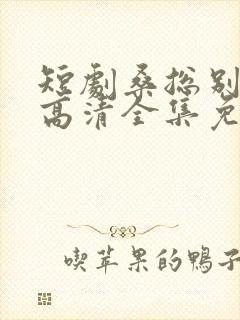 短劇桑总别
高清全集免
喫苹果的鴨子